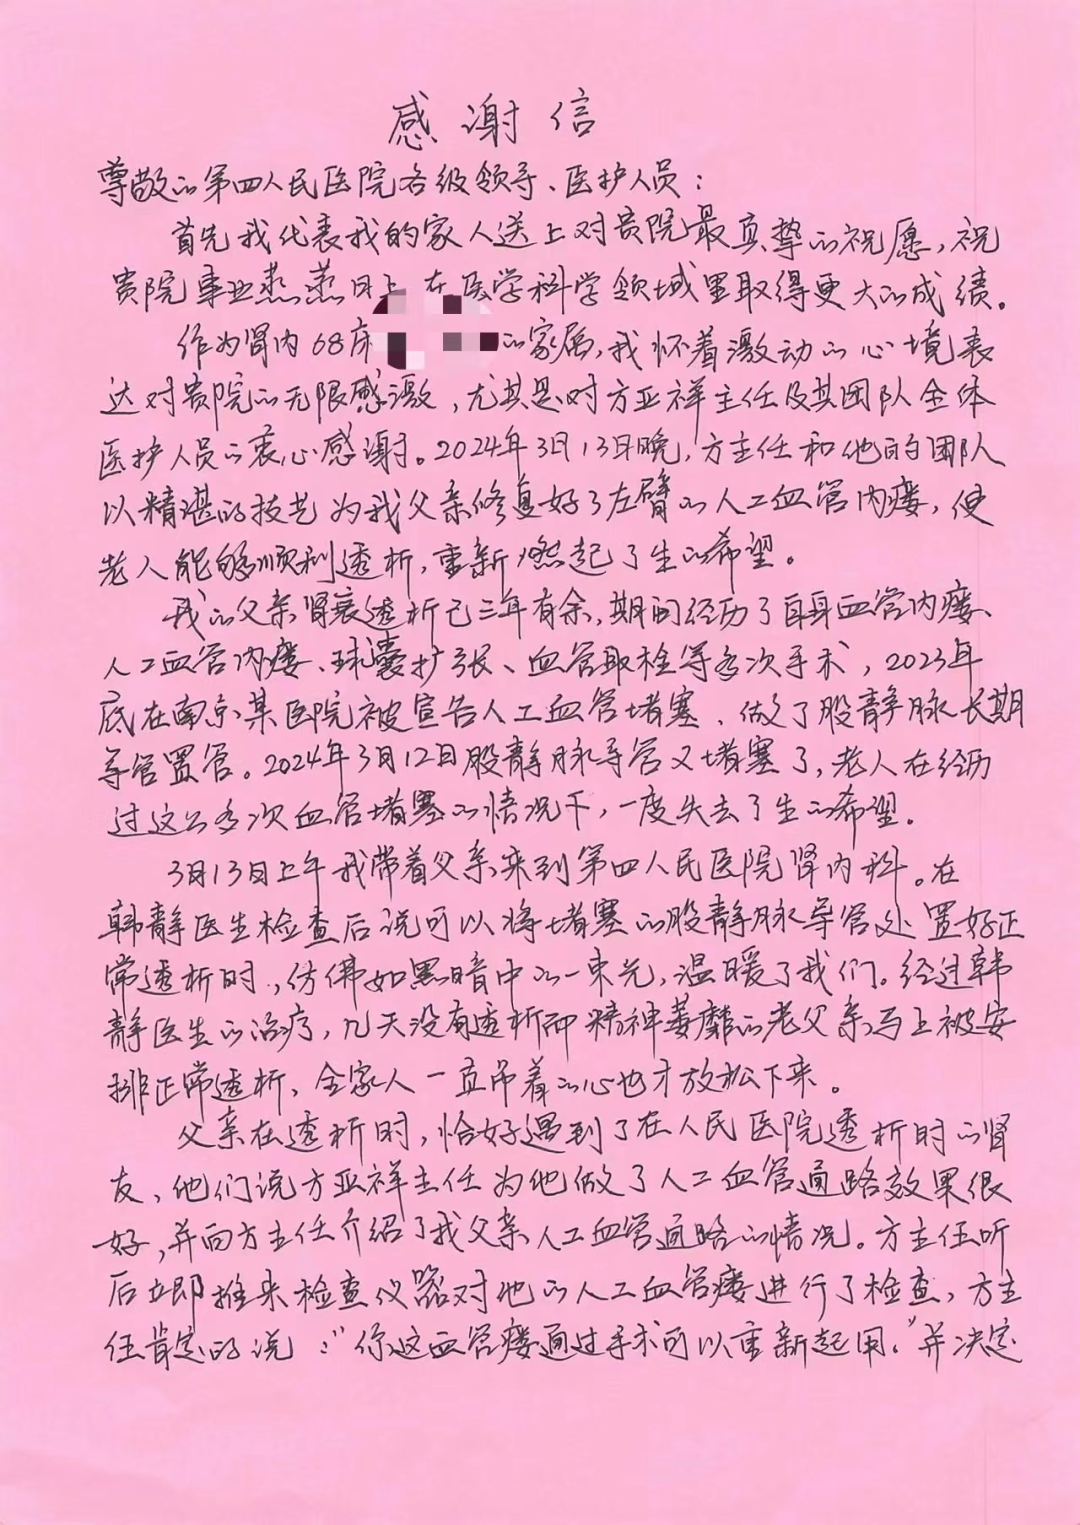 感谢信
尊敬的第四人民医院各级领导、医护人员：
首先我代表我的家人送上对贵院最真挚的祝愿，祝
贵院事业蒸蒸日上在医学科学领域里取得更大的成绩。
作为肾内68床的家属，我怀着激动的心境表
达对贵院的无限感激，尤其是对方亚祥主任及其团队全体
医护人员的衷心感谢。2024年3月13日晚，方主任和他的团队
以精湛的技艺为我父亲修复好了左臂的人工血管内瘘，使
老人能够顺利透析，重新燃起了生的希望。
我的父亲肾衰透析已三年有余，期间经历了自身血管内瘘、
人工血管内瘘、球囊扩张、血管取栓等多次手术，2023年
底在南京某医院被宣告人工血管堵塞、做了股静脉长期
导管置管。2024年3月12日股静脉导管又堵塞了，老人在经历
过这么多次血管堵塞的情况下，一度失去了生的希望。
3月13日上午我带着父亲来到第四人民医院肾内科。在
韩静医生检查后说可以将堵塞的股静脉导管处置好正
常透析时，仿佛如黑暗中的一束光，温暖了我们。经过韩
静医生的治疗，几天没有透析而精神萎靡的老父亲马上被安
排正常透析，全家人一直吊着的心也才放松下来。
父亲在透析时，恰好遇到了在人民医院透析时的肾
友，他们说方亚祥主任为他做了人工血管通路效果很
好，并向方主任介绍了我父亲人工血管通路的情况。方主任听
后立即推来检查仪器对他的人工血管瘘进行了检查，方主
任肯定的说：“你这血管瘘通过手术可以重新起用。”并决定